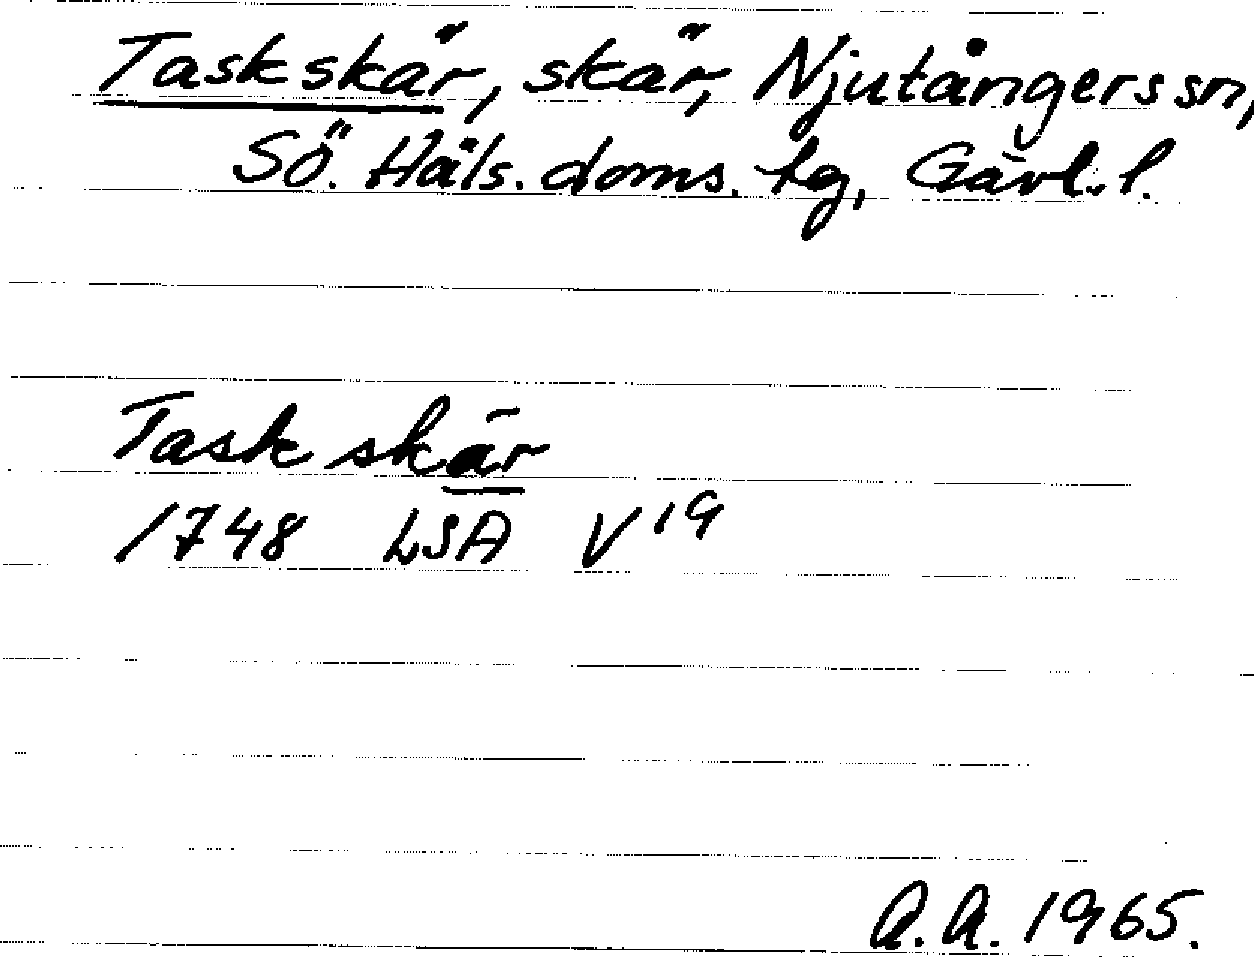 Taskskär, skär, Njutångers sn,
Sö. Häls. doms. tg, Gävl. l.
Task skär
1748 LSA V 19
A.A. 1965.